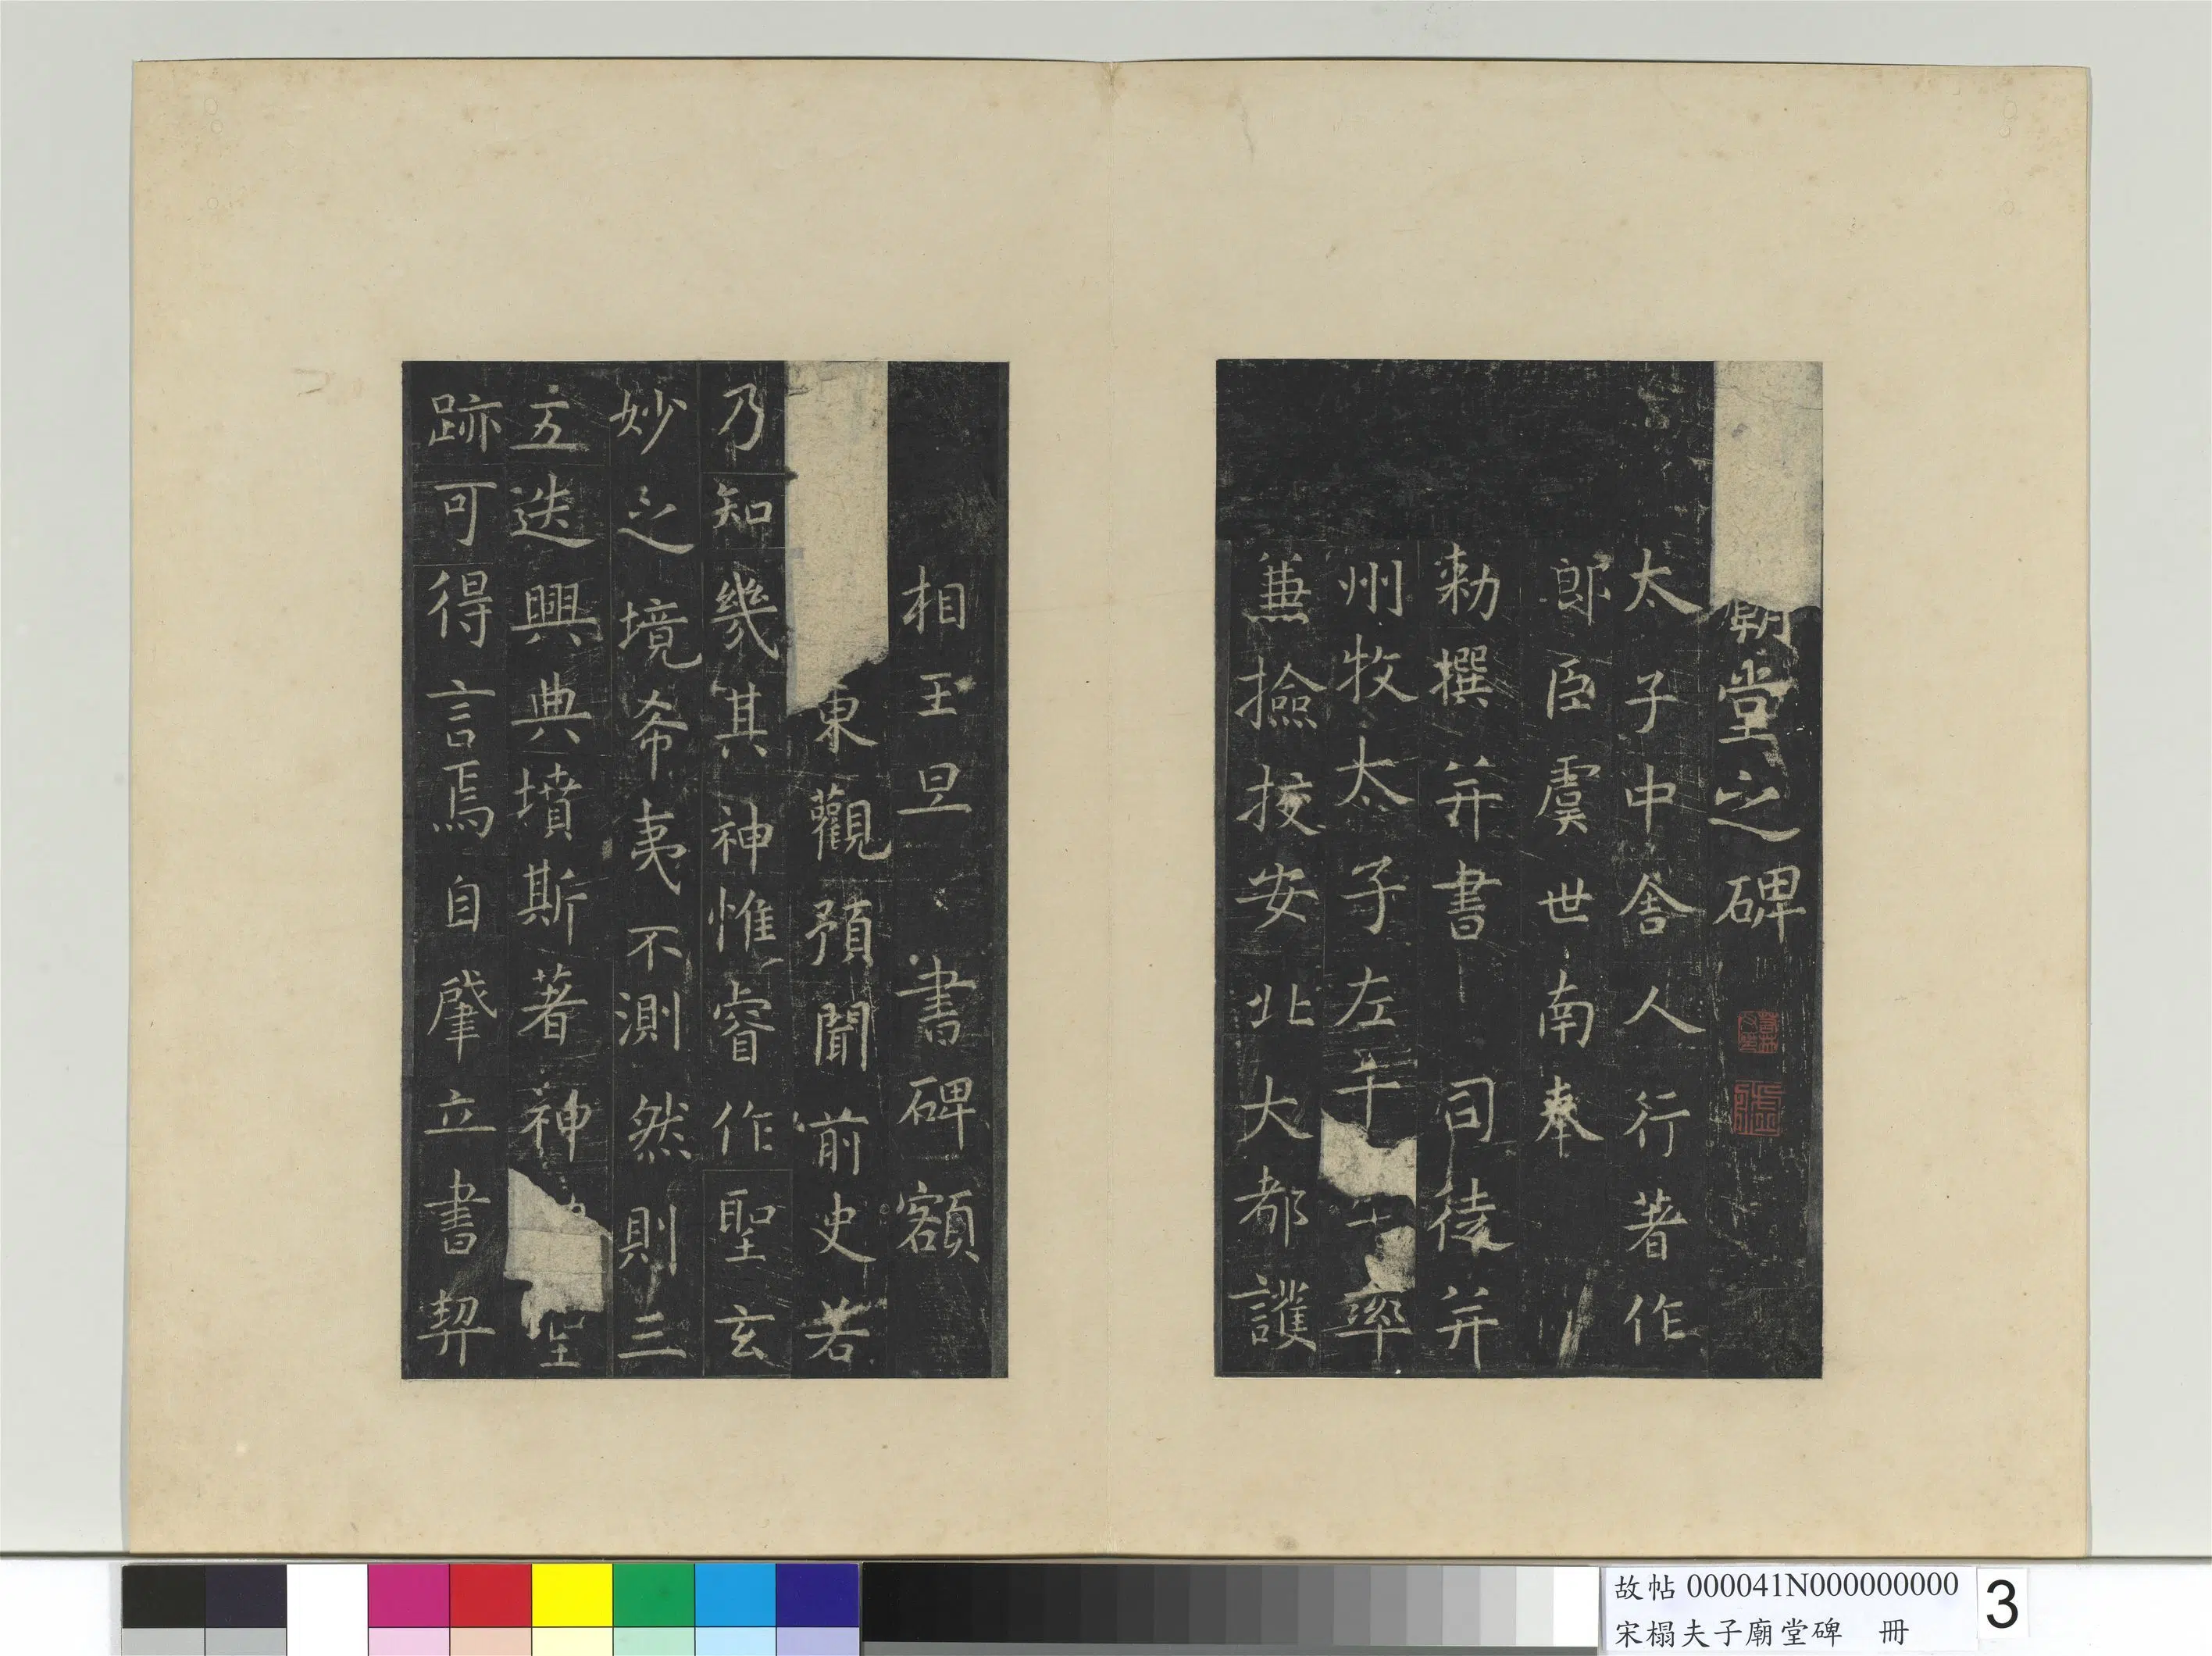 廟堂之碑
太子中舍人行著作
郎臣虞世南奉
勑撰并書 司徒并
州牧太子左千 率
蕪撿挍安北大都護
相王旦 書碑額
東觀預聞前史若
乃知幾其神惟睿作聖玄
妙之境希夷不測然則三
五迭興典墳斯著神 聖
跡可得言焉自肇立書契
故帖 000041N000000000
宋榻夫子廟堂碑 冊
3